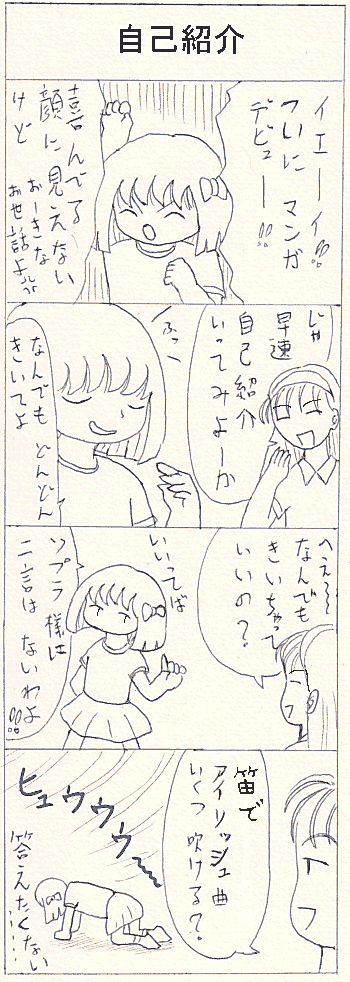 自己紹介
イエーイ!!
ついに マンガ
デビュー!!
喜んでる
顔に見えない
けど
おーきな
お世話よ!!
じゃ
早速
自己紹介
いってみよーか
ふっ
なんでも どんどん
きいてよ
へえ〜〜
なんでも
きいちゃって
いいの?
いいってば
ソプラ様は
二言は ないわよ!!
笛で
アイリッシュ曲
いくつ吹ける?
ヒュウウウ〜
答えたくない……